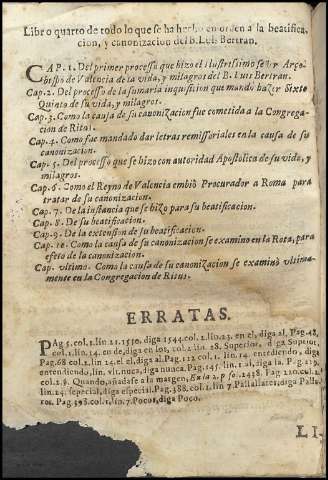 Libro quarto de todo lo que se ha hecho en orden a la beatifica-
cion, y canonizacion del B. Luis Bertran.
CAP. 1. Del primer processo que hizo el Ilustrissimo señor Arço-
bispo de Valencia de la vida, y milagros del B. Luis Bertran.
Cap. 2. Del processo de la sumaria inquisicion que mandò hazer Sixto
Quinto de su vida, y milagros.
Cap. 3. Como la causa de su canonizacion fue cometida a la Congrega-
cion de Ritus.
Cap. 4. Como fue mandado dar letras remissoriales en la causa de su
canonizacion.
Cap. 5. Del processo que se hizo con autoridad Apostolica de su vida, y
milagros.
Cap. 6. Como el Reyno de Valencia embiò Procurador a Roma para
tratar de su canonizacion.
Cap. 7. De la instancia que se hizo para su beatificacion.
Cap. 8. De su beatificacion.
Cap. 9. De la extension de su beatificacion.
Cap. 10. Como la causa de su canonizacion se examino en la Rota, para
efeto de la canonizacion.
Cap. vltimo. Como la causa de su canonizacion se examinò vltima-
mente en la Congregacion de Ritus.
ERRATAS.
Pag 5. col. 1. lin 21. 1550. diga 1544. col. 2. lin. 23. en el, diga al. Pag. 48.
col. 1. lin. 14. en de, diga en los, col. 2. lin. 28. Superior, diga Superior.
Pag. 68 col. 2. lin 14. el el, diga el. Pag. 112 col. 1. lin. 14. entediendo, diga
entendiendo, lin. vlt. nuca, diga nunca. Pag. 145. lin. 1. al, diga la. Pag. 219.
col. 2. § Quando, añadase a la margen, Pag 220. col. 2.
lin. 24. fepecial, diga especial. Pag. 388. col. 1. lin 7. Pallallates, diga Palla-
ros. Pag. 398. col. 1. lin. 7. Pocos, diga Poco.
LI-